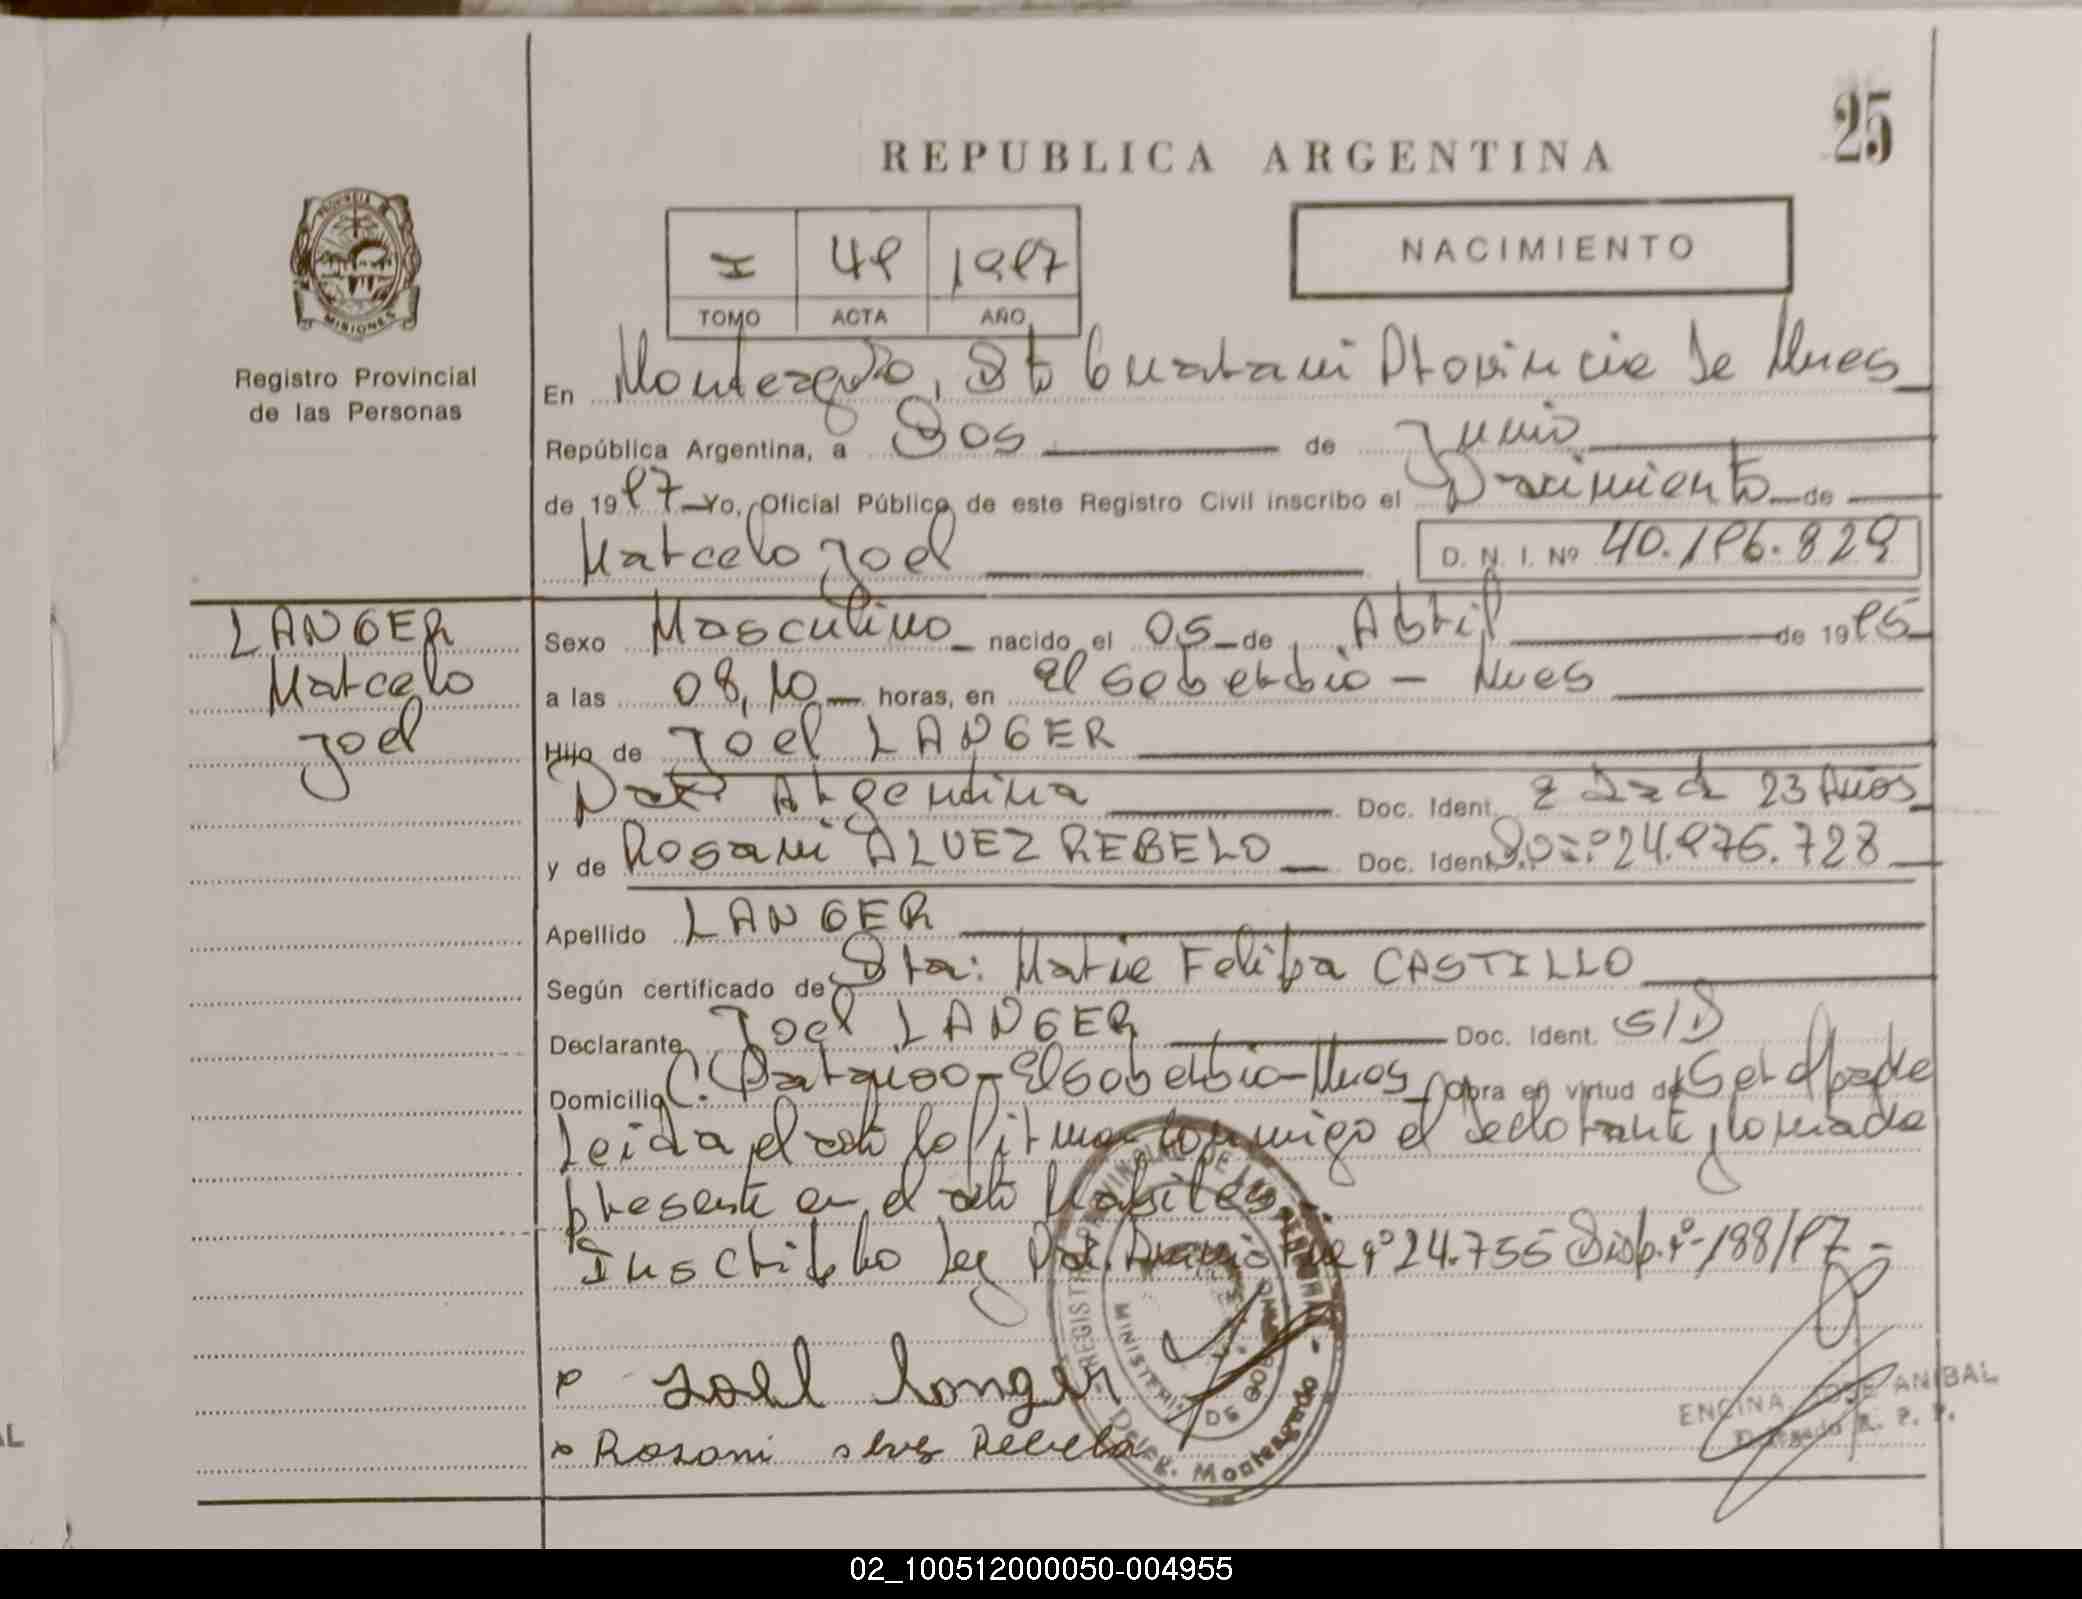 25
REPUBLICA ARGENTINA
I 48 1987
TOMO ACTA AÑO
NACIMIENTO
PROVINCIA DE MISIONES
Registro Provincial
de las Personas
En Monteagudo, Dto Guarani Provincia de Mnes
República Argentina, a Dos de Junio
de 1987 Yo, Oficial Público de este Registro Civil inscribo el Nacimiento de
Marcelo Joel D. N. I. Nº 40.186.829
LANGER
Marcelo
Joel
Sexo Masculino nacido el 05 de Abril de 1985
a las 08,10 horas, en El Soberbio - Mnes
Hijo de Joel LANGER
Nac. Argentina Doc. Ident. Edad 23 Años
y de Rosani ALVEZ REBELO Doc. Ident. 24.876.728
Apellido LANGER
Según certificado de Sta: Maria Felipa CASTILLO
Declarante Joel LANGER Doc. Ident. S/D
Domicilio El Soberbio-Mnes Obra en virtud de Ser el padre
Leida el acta la firman conmigo el declarante y la madre
presente en el acto
Inscripto ley nº 24.755 Disp. nº 188/87-
Joel Langer
Rosani Alves Rebelo
REGISTRO PROVINCIAL DE LAS PERSONAS
MINISTERIO DE GOBIERNO
DELEG. Monteagudo
ENCINA JOSE ANIBAL
Delegado R. P. P.
AL
02_100512000050-004955